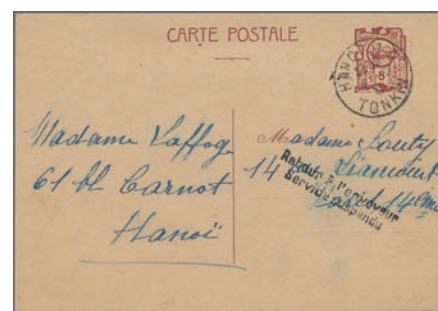 CARTE POSTALE
HANOI
TONKIN
8
Madame Laffage
61 bd Carnot
Hanoï
Madame Souty
14
14ème
Retour à l'envoyeur
Service suspendu